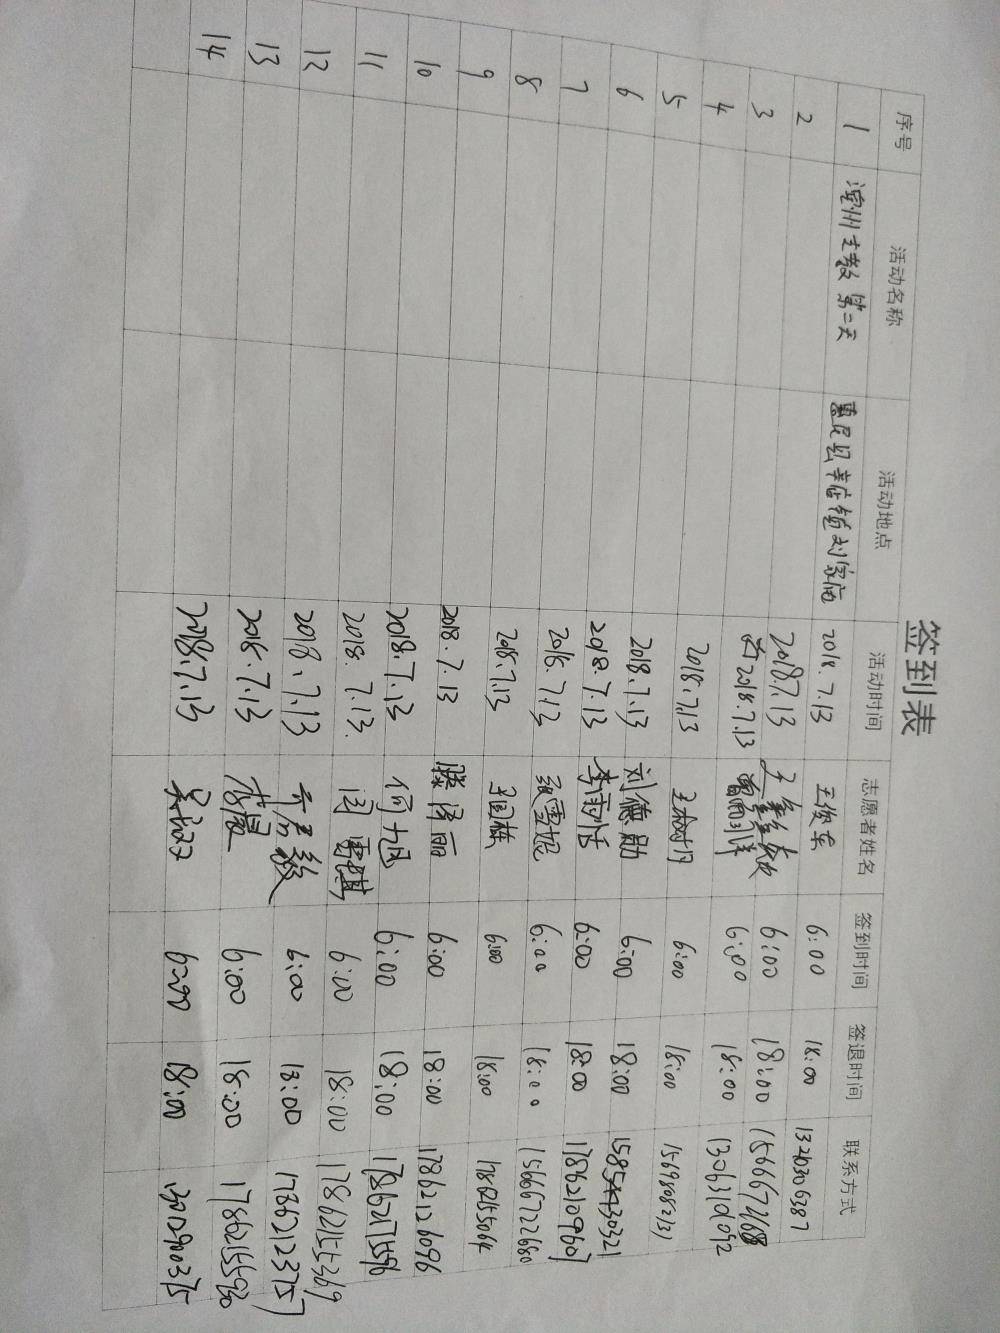 签到表
序号 活动名称 活动地点 活动时间 志愿者姓名 签到时间 签退时间 联系方式
1 滨州支教 第二天 惠民县辛店镇刘家庙 2018.7.13 王俊东 6:00 18:00 13203063
2 2018.7.13 6:00 18:00
3 2018.7.13 6:00 18:00 13063101092
4 2018.7.13 王树月 6:00 18:00 15698082131
5 2018.7.13 刘德勋 6:00 18:00
6 2018.7.13 李雨恬 6:00 18:00 17862109607
7 2018.7.13 6:00 18:00 15666722680
8 2018.7.13 6:00 18:00 17862155064
9 2018.7.13 滕泽丽 6:00 18:00 17862126096
10 2018.7.13 何旭 6:00 18:00 17862175596
11 2018.7.13. 闫雪祺 6:00 18:00 17862155369
12 2018.7.13 亓君毅 6:00 18:00 17862123757
13 2018.7.13 6:00 18:00 17862155930
14 2018.7.13 6:00 18:00